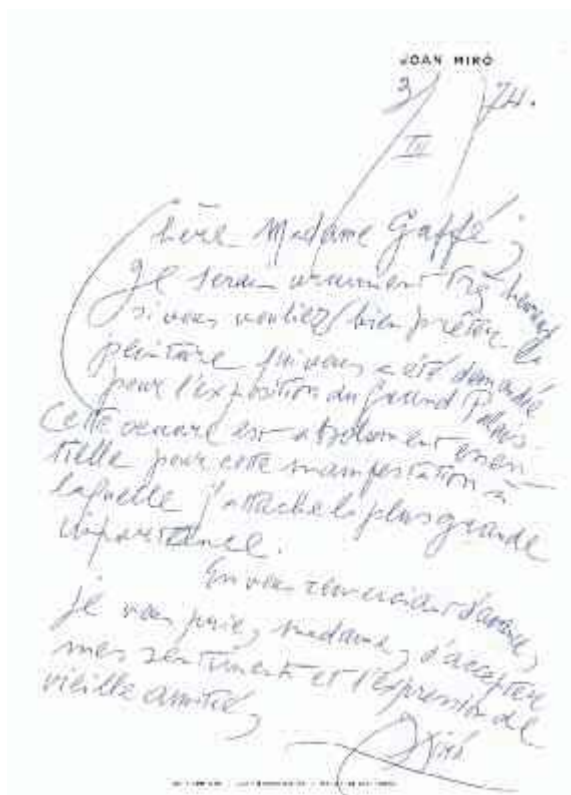 JOAN MIRÓ
3/III/74.
Chère Madame Gaffé,
Je serais vraiment très heureux
si vous vouliez bien prêter la
peinture qui vous a été demandée
pour l'exposition du Grand Palais.
Cette oeuvre est absolument essen-
tielle pour cette manifestation à
laquelle j'attache la plus grande
importance.
En vous remerciant d'avance,
je vous prie, madame, d'accepter
mes sentiments et l'expression de
vieille amitié,
Miró.